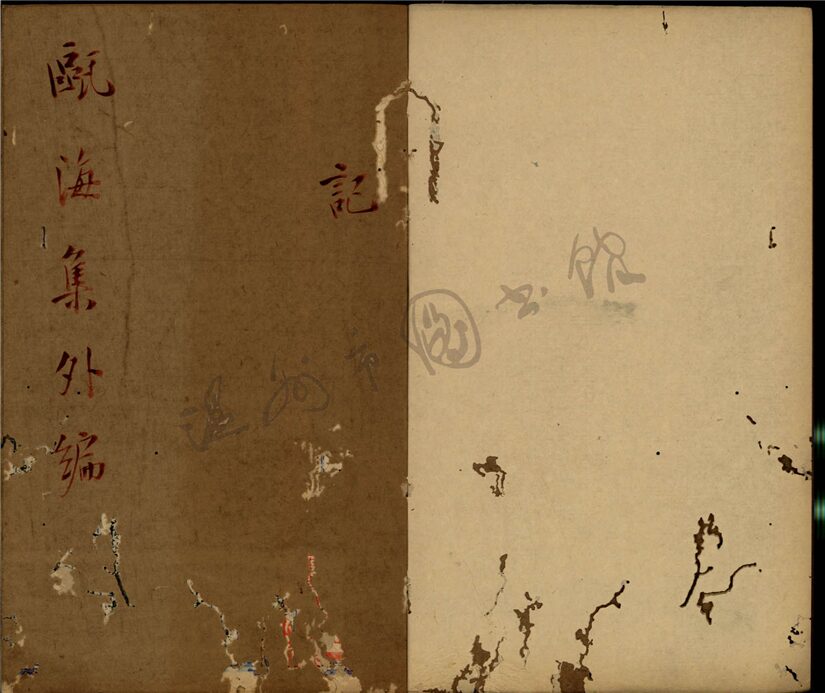 甌海集外編
記
温州市圖书館